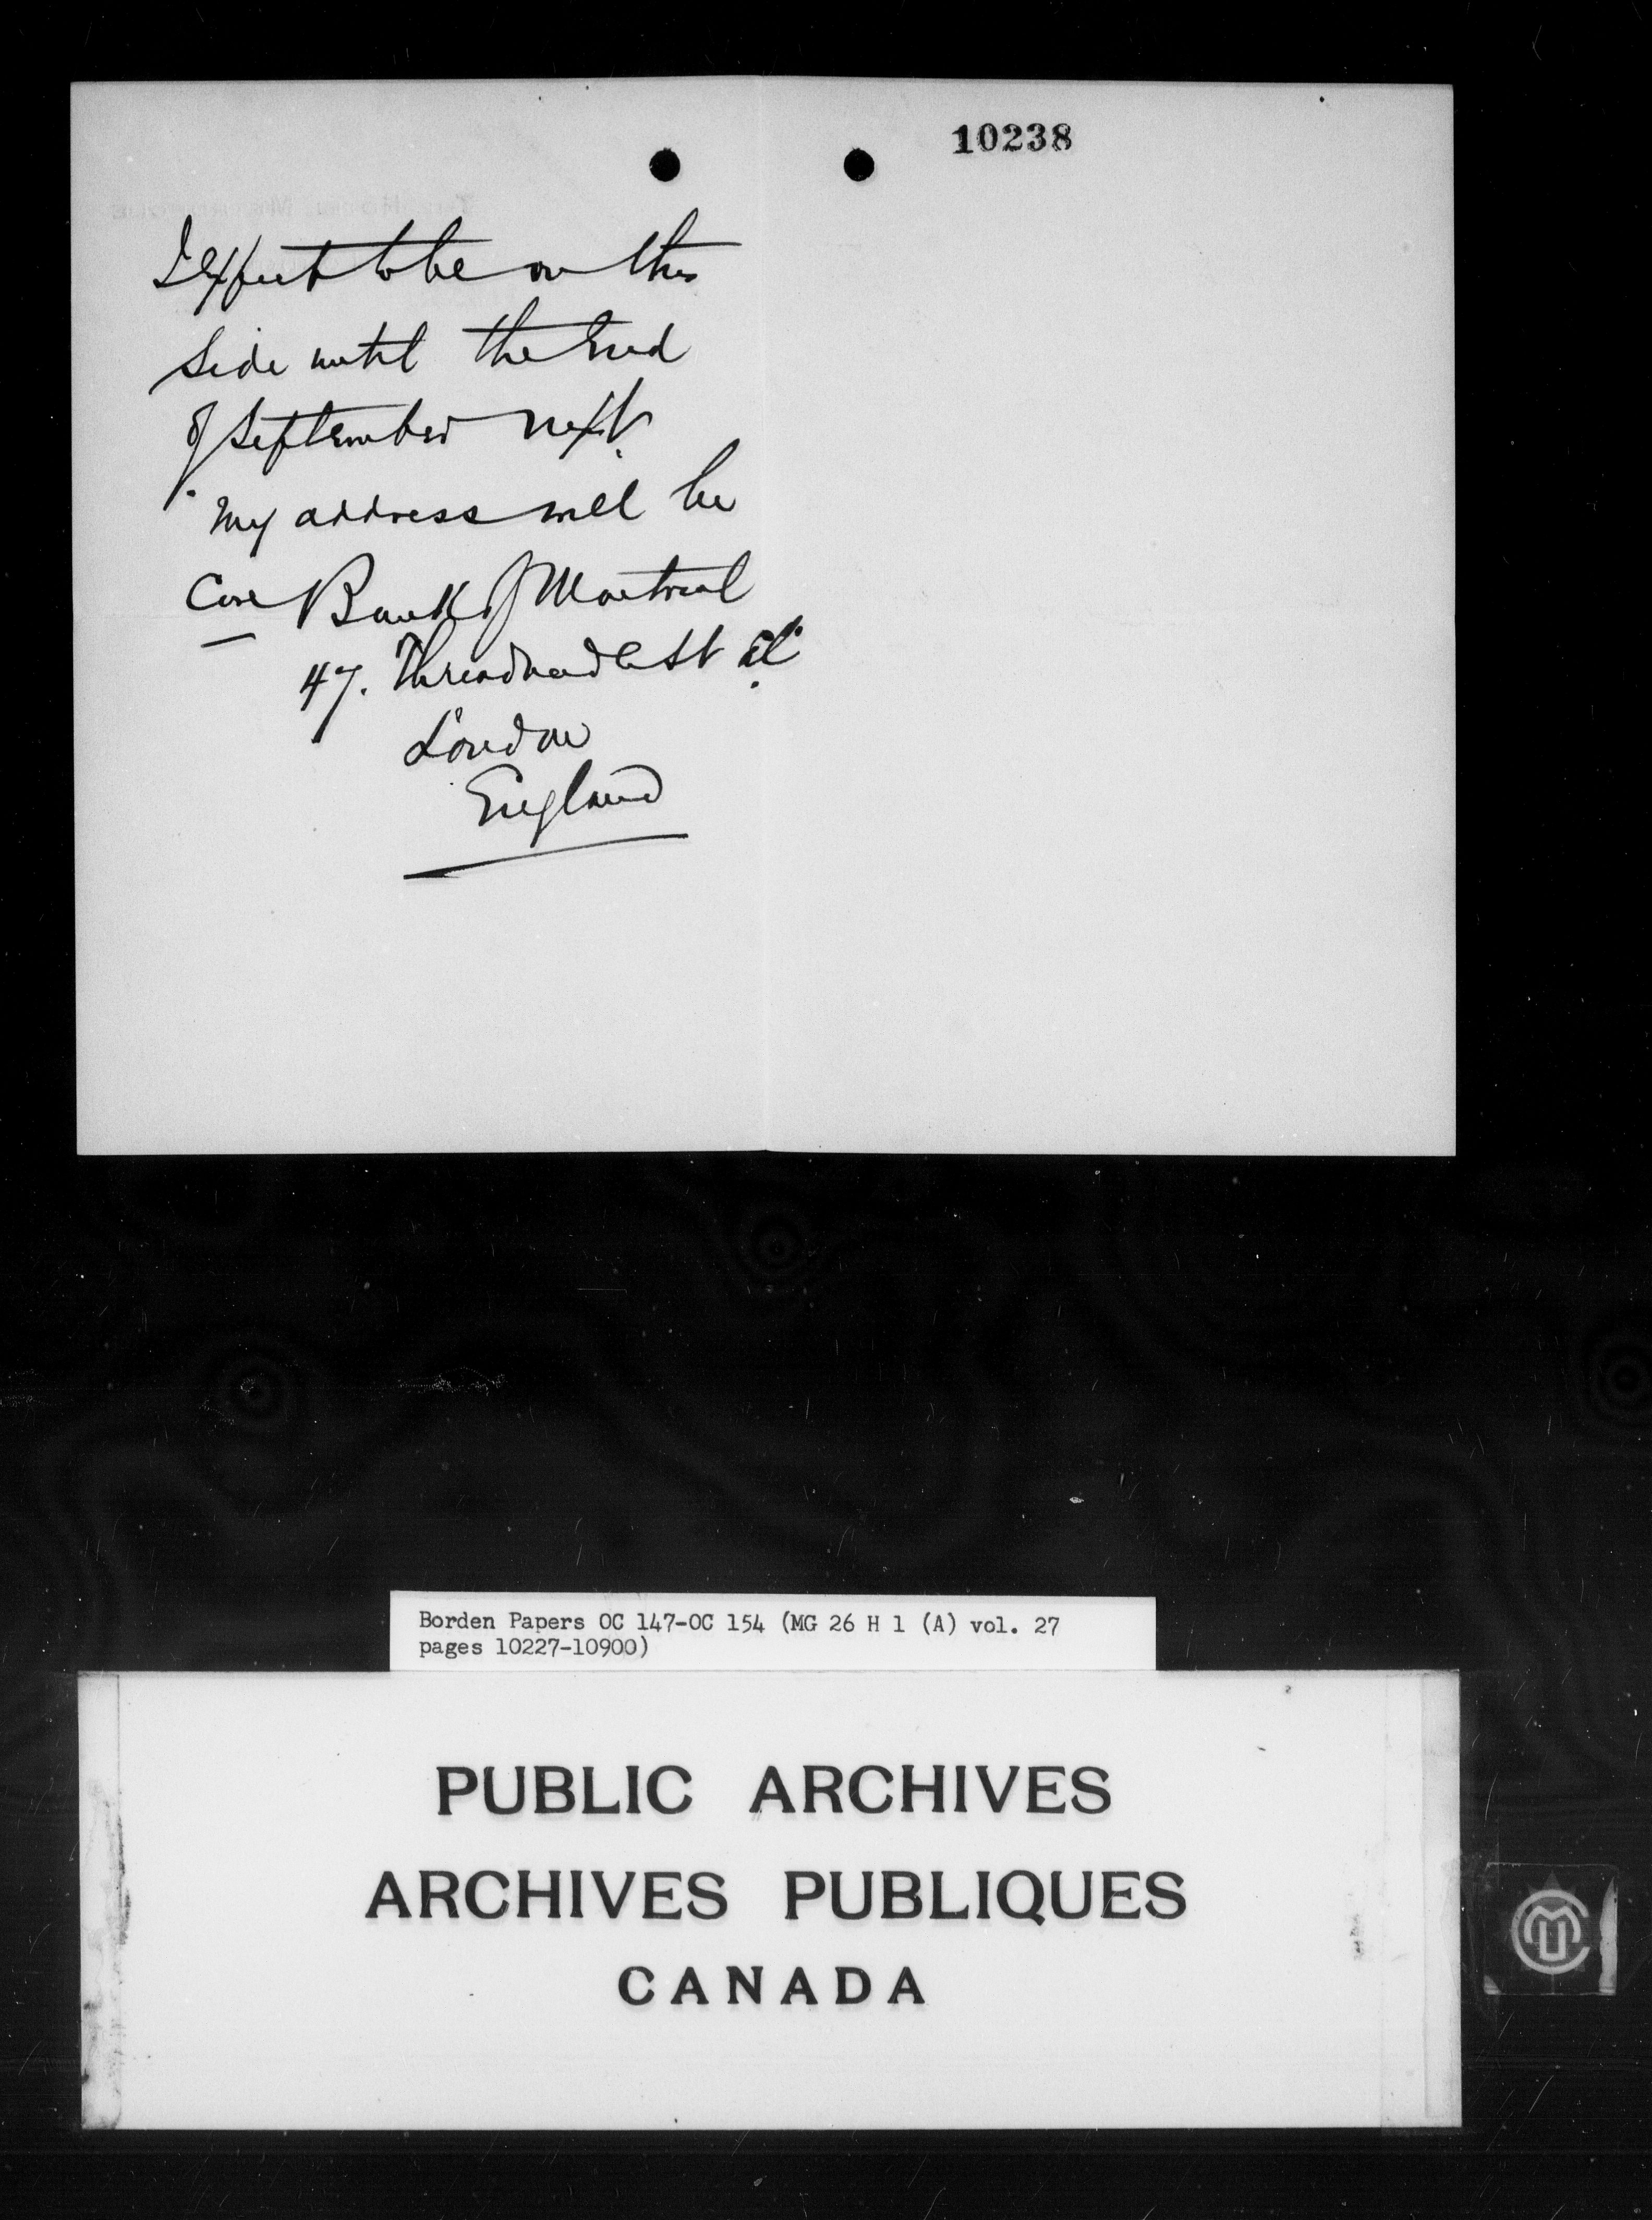 10238
I expect to be on this
side until the end
of September next.
My address will be
Care Bank of Montreal
47. Threadneedle St E.C.
London
England
Borden Papers OC 147-OC 154 (MG 26 H 1 (A) vol. 27
pages 10227-10900)
PUBLIC ARCHIVES
ARCHIVES PUBLIQUES
CANADA